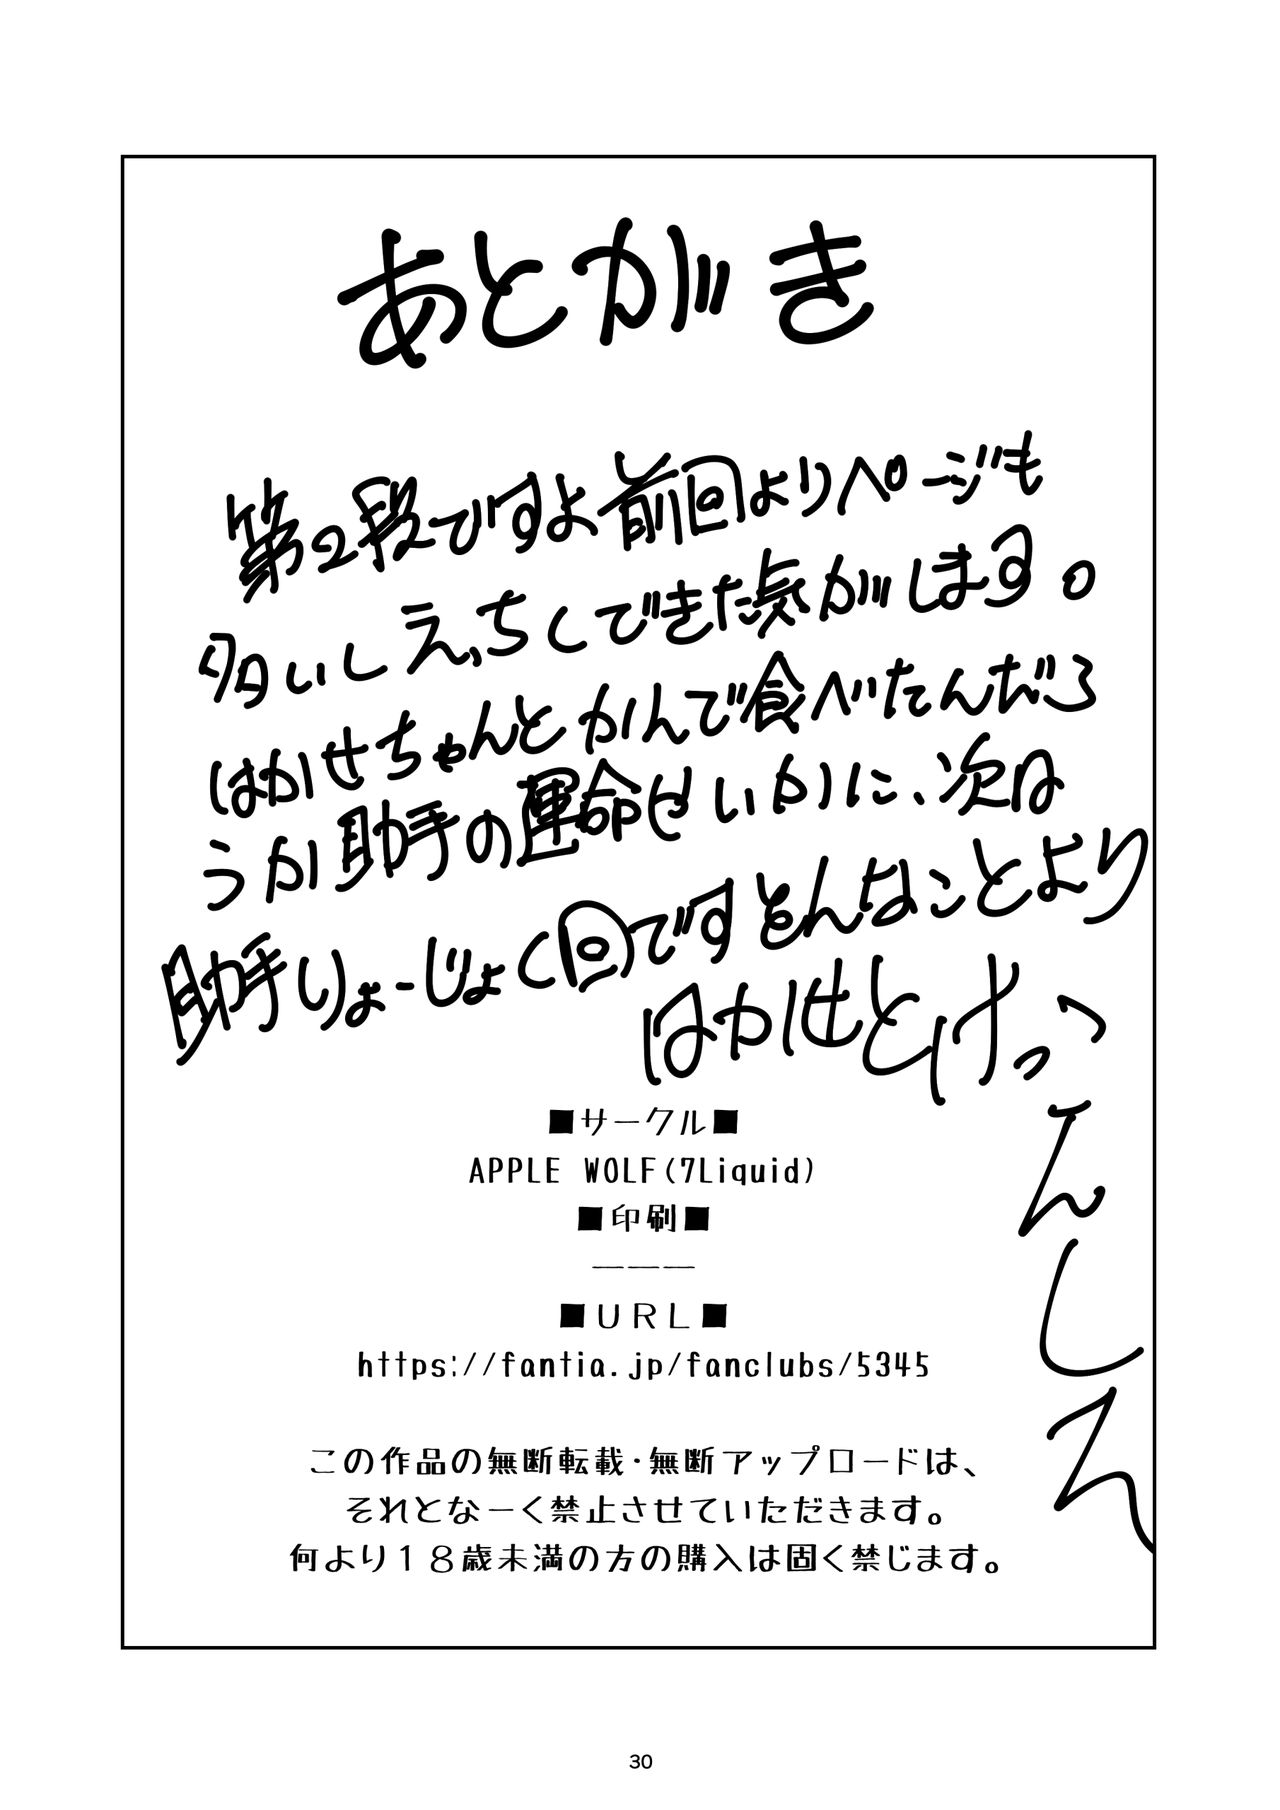 あとがき
第2段ですよ前回よりページも
多いしえっちくできた気がします。
はかせちゃんとかんで食べたんだろ
うか助手の運命はいかに、次は
助手りょーじょく回ですそんなことより
はかせとけっこんしろ
■サークル■
APPLE WOLF(7Liquid)
■印刷■
ーーー
■URL■
https://fantia.jp/fanclubs/5345
この作品の無断転載・無断アップロードは、
それとなーく禁止させていただきます。
何より１８歳未満の方の購入は固く禁じます。
30